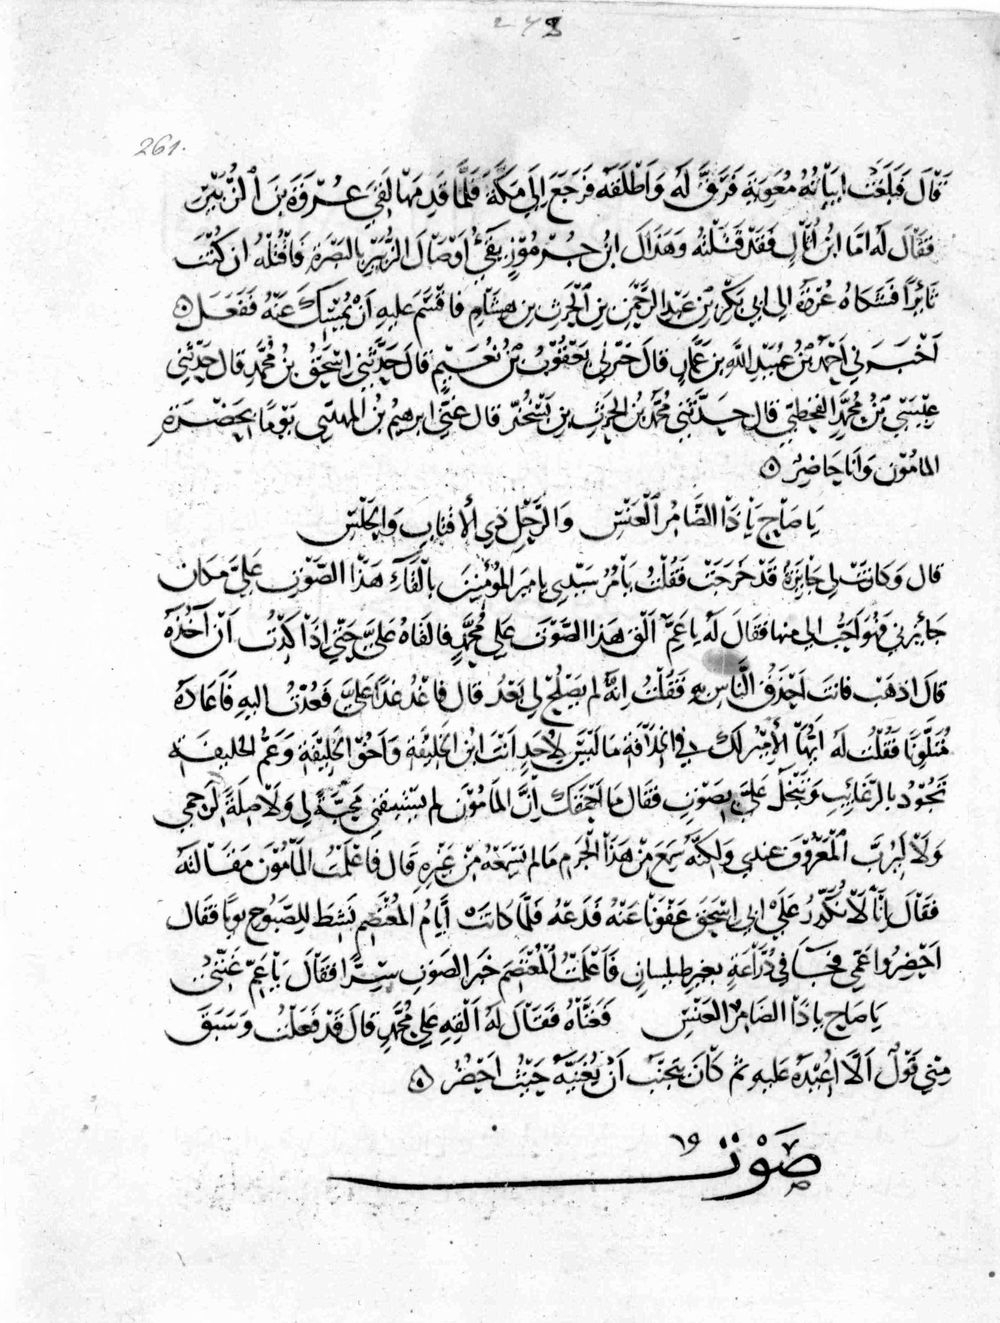 278
261.
قال فبلغت ابياته معوية فرق له واطلقه فرجع الى مكة فلما قدمها لقى عروة بن الزبير
فقال له اما ابن اثال فقد قتلته وهذاك ابن جرموز يفى اوصال الزبير بالبصرة فاقتله ان كنت
ثائرا فشكاه عروة الى ابى بكر بن عبد الرحمن بن الحرث بن هشام فاقسم عليه ان يمسك عنه ففعل ه
اخبرني احمد بن عبيد الله بن عمار قال حدثني يعقوب بن نعيم قال حدثني اسحق بن محمد قال حدثني
عيسى بن محمد القحطبي قال حدثني محمد بن الحرث بن بسخنر قال غنى ابرهيم بن المهدي يوما بحضرة
المامون وانا حاضر ه
يا صاح يا ذا الضامر العنس والرحل ذي الاقتاب والحلس
قال وكانت لي جائزة قد خرجت فقلت يامر سيدي يا مير المؤمنين بالقاء هذا الصوت علي مكان
جائزتي فهو احب الى منها فقال له يا عم الق هذا الصوت على محمد فالقاه علي حتى اذا كدت ان اخذه
قال اذهب فانت احذق الناس به فقلت انه لم يصلح لي بعد قال فاغد غدا علي فعدت اليه فاعاده
متلويا فقلت له ايها الأمير لك في الخلافة ما ليس لأحد انت ابن الخليفة واخو الخليفة وعم الخليفة
تجود بالرغائب وتبخل علي بصوت فقال ما احمقك ان المامون لم يستبقني محبة لي ولا صلة لرحمي
ولا ليرب المعروف عندي ولكنه سمع من هذا الجرم مالم يسمعه من غيره قال فاعلمت المامون مقالته
فقال انا لا نكدر على ابى اسحق عفونا عنه فدعه فلما كانت ايام المعتصم نشط للصبوح يوما فقال
احضروا عمي فجا في دراعة بغير طيلسان فاعلمت المعتصم خبر الصوت سرا فقال يا عم غنني
يا صاح يا ذا الضامر العنس فغناه فقال له القه على محمد قال قد فعلت وسبق
مني قول الا اعيده عليه ثم كان يتجنب ان يغنيه حيث احضر ه
صوت